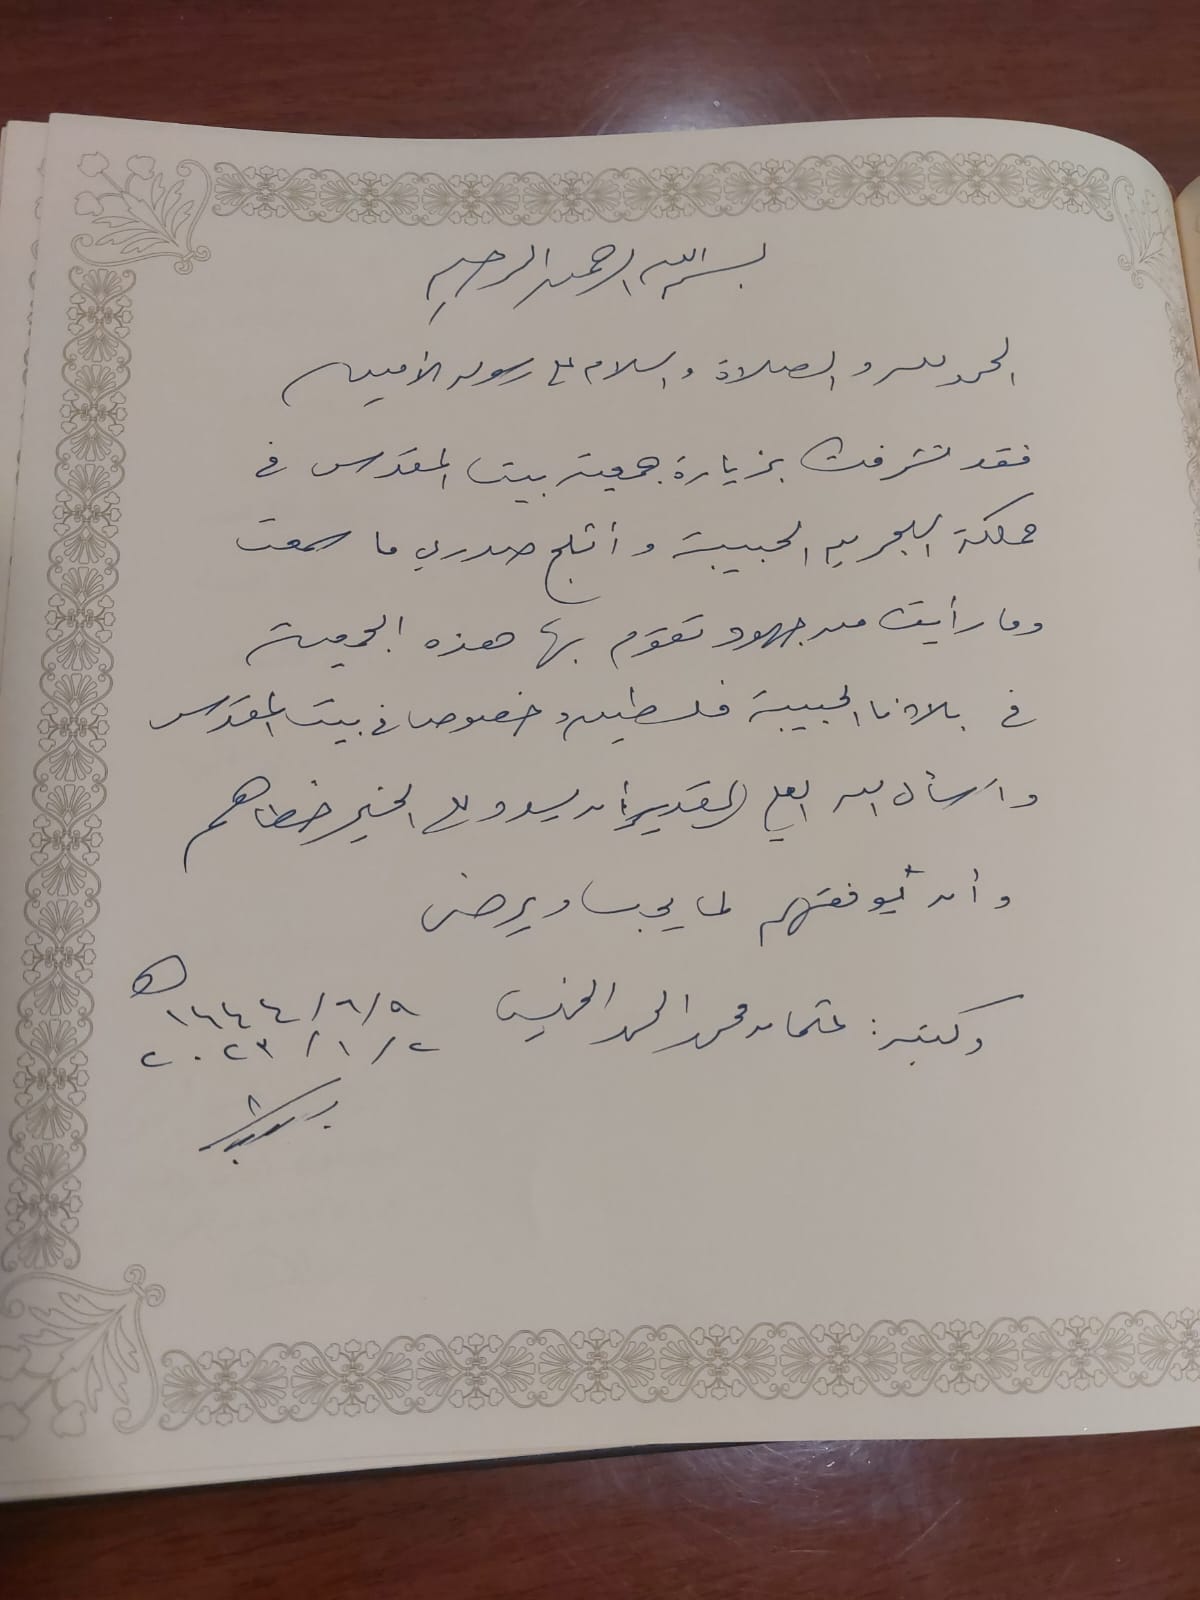 بسم الله الرحمن الرحيم
الحمد لله و الصلاة والسلام على رسوله الأمين
فقد تشرفت بزيارة جمعية بيت المقدس في
مملكة البحرين الحبيبة وأثلج صدري ما سمعت
وما رأيت من جهود تقوم بها هذه الجمعية
في بلادنا الحبيبة فلسطين وخصوصا في بيت المقدس
وأسأل الله العلي القدير أن يسدد على الخير خطاهم
وأن يوفقهم لما يحب ويرضى
وكتبه: عثمان محمد الحمد الخميس ٩/٦/١٤٤٤هـ
٢/١/٢٠٢٣